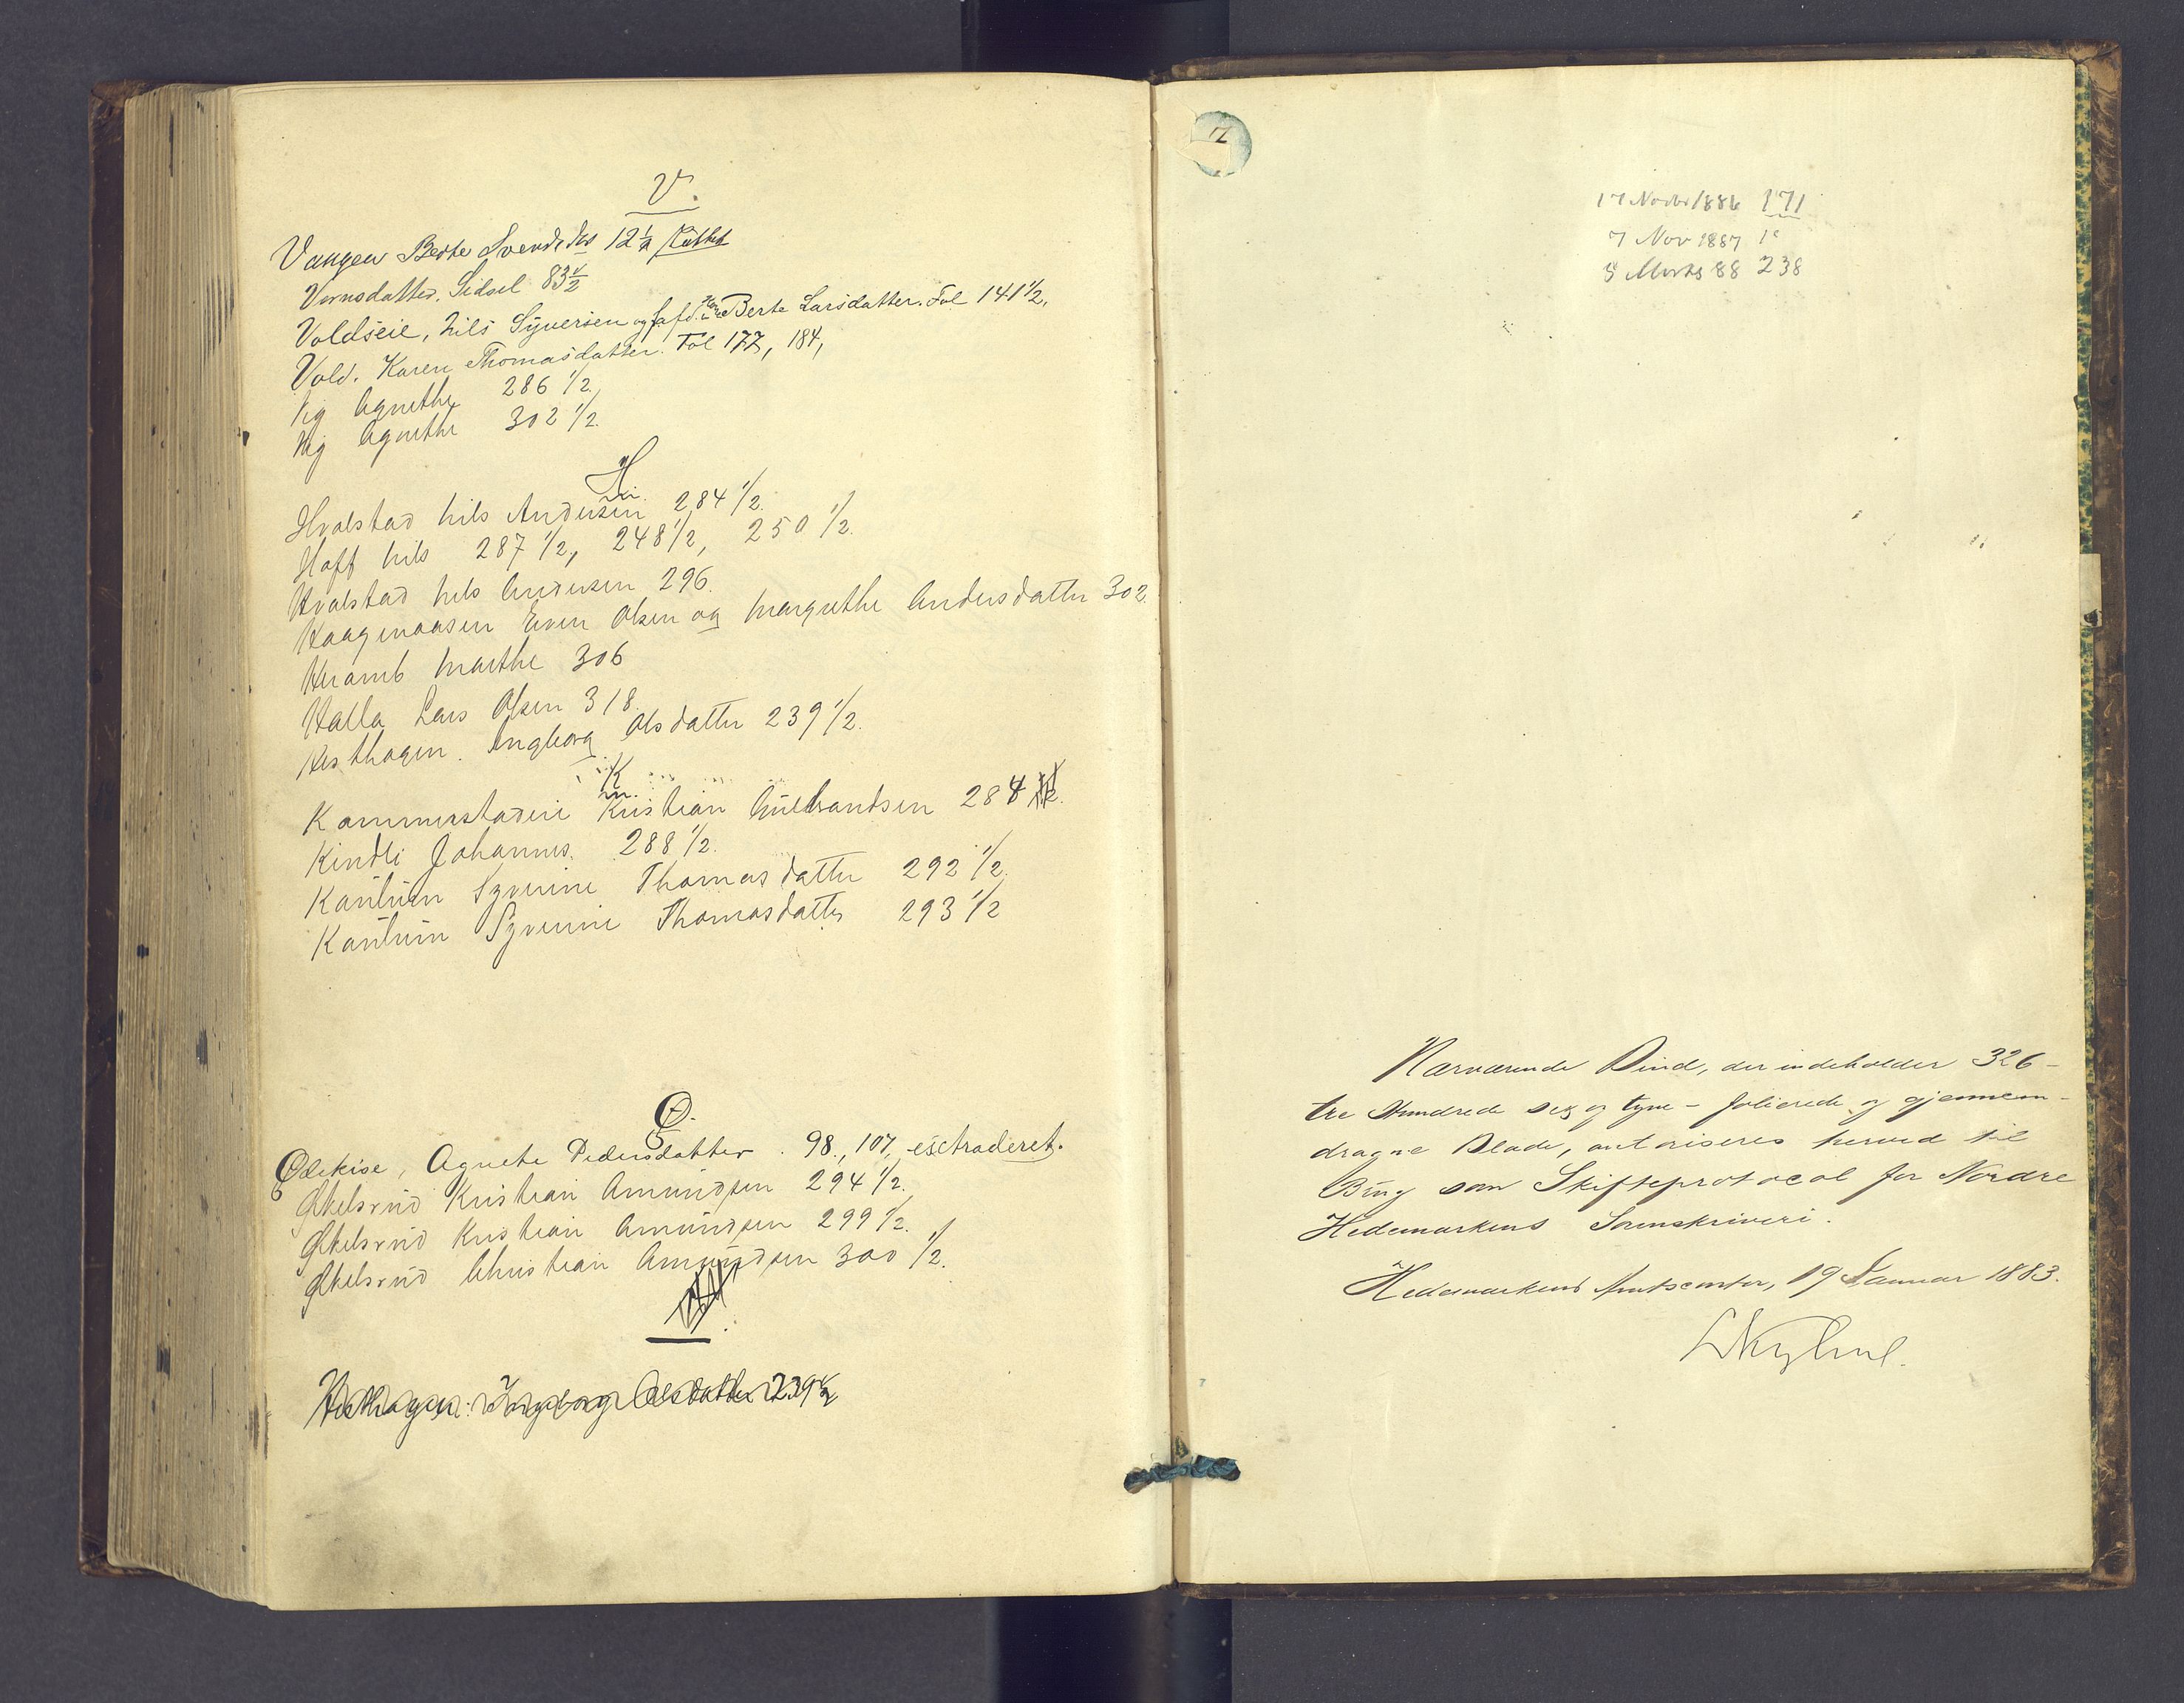 V.
Vangen Berthe Svendsdtr 12½
Vernsdatter, Sidsel 83½
Voldseie, Nils Syversen og Berte Larsdatter. Fol 141½,
Vold. Karen Thomasdatter. Fol 177, 184,
Vig Agnethe 286 1/2.
Vig Agnethe 302 1/2.
H
Hvalstad Nils Andersen 284 1/2.
Hoff Nils 287 1/2, 248 1/2, 250 1/2.
Hvalstad Nels Andersen 296.
Haagenaasen Even Olsen og Margrethe Andersdatter 302.
Heramb Marthe 306
Halla Lars Olsen 318.
Hesthagen. Ingeborg Olsdatter 239 1/2.
K
Kammerstadeie Kristian Gulbrandsen 284
Kindli Johannes. 288 1/2.
Kanten Syverine Thomasdatter 292 1/2.
Syverine Thomasdatter 293 1/2
Ø.
Ødekise, Agnete Pedersdatter. 98., 107, extraderet.
Økelsrud Kristian Amundsen 294 1/2.
Økelsrud Kristian Amundsen 299 1/2.
Økelsrud Christian Amundsen 300 1/2.
Hesthagen. Ingeborg Olsdatter 239½
7
17 Novbr 1886 171
7 Nov 1887
5 Marts 88 238
Nærværende Bind, der indeholder 326 -
tre Hundrede sex og tyve - folierede og gjennem-
dragne Blade, autoriseres herved til
Brug som Skifteprotocol for Nordre
Hedemarkens Sorenskriveri.
Hedemarkens Amtscontor, 19 Januar 1883.